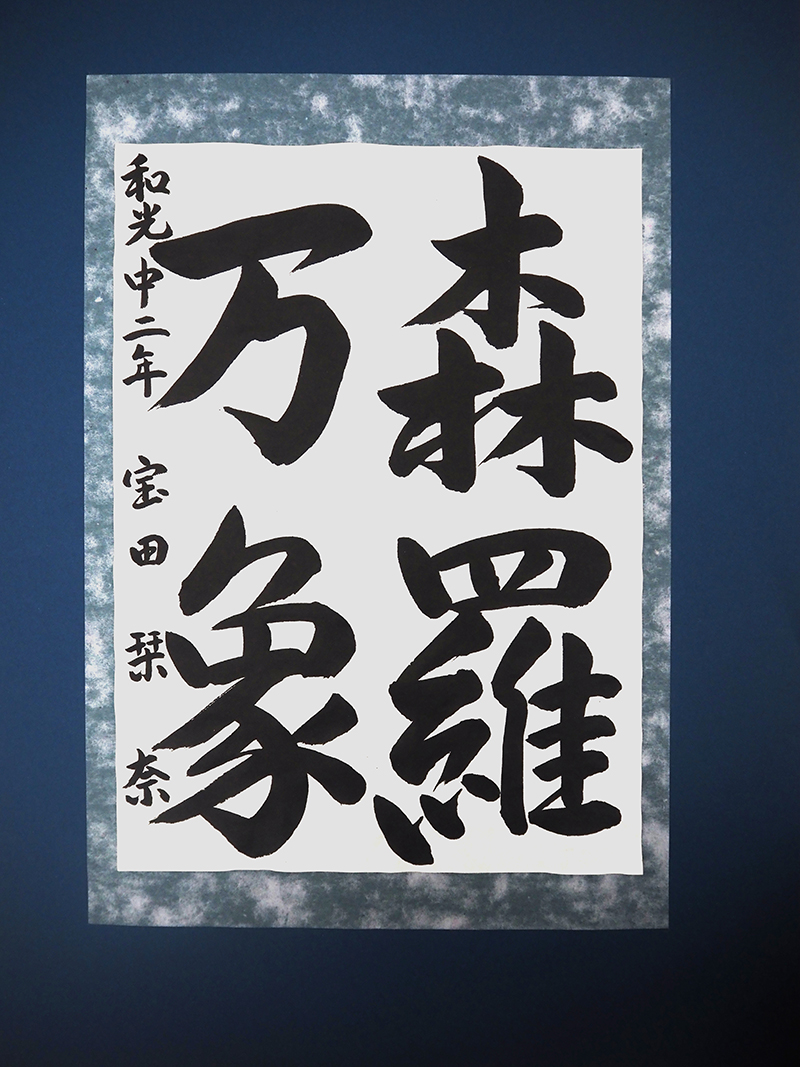 森羅
万象
和光中二年 宝田栞奈